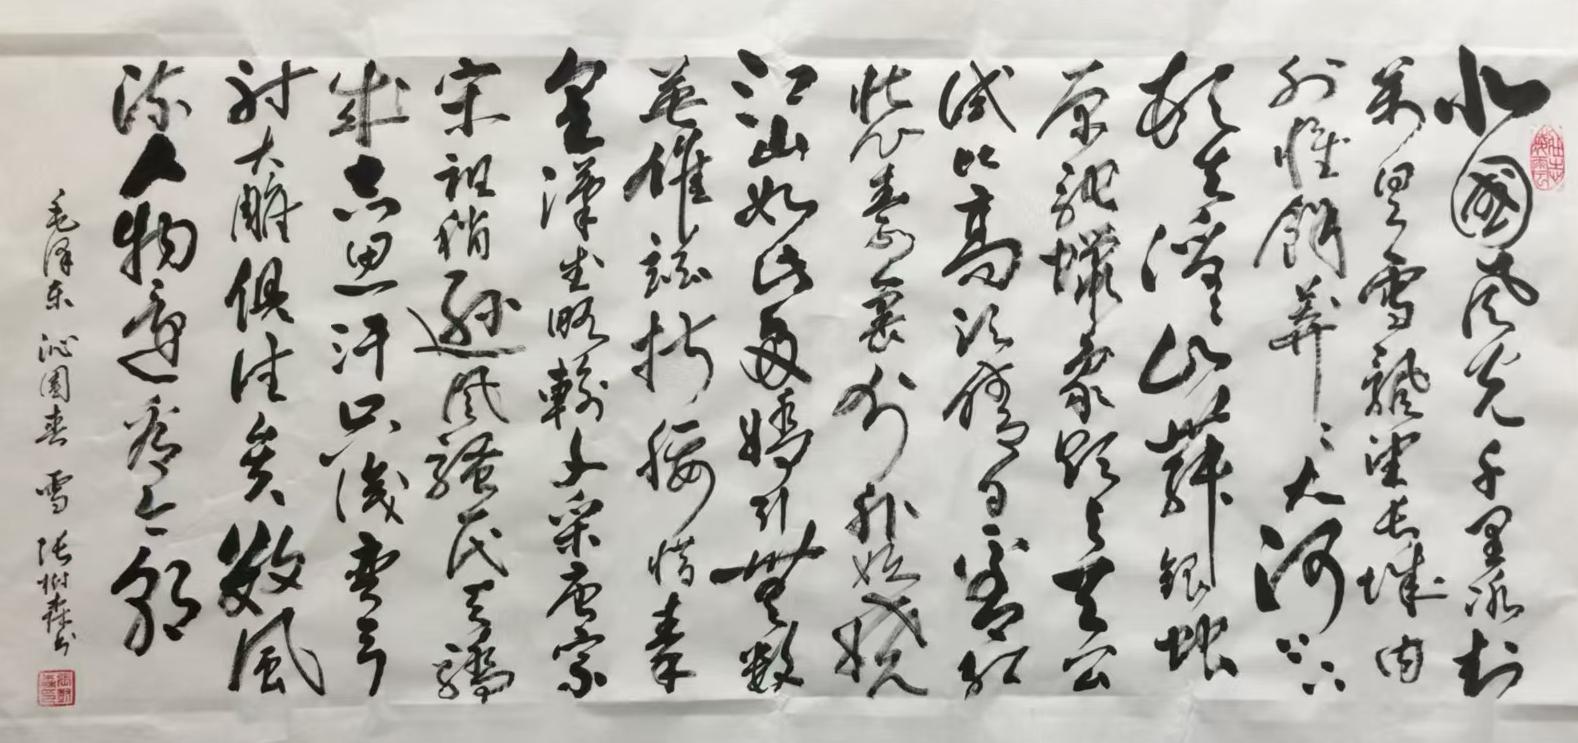 北國风光千里冰封
万里雪飘望长城内
外惟馀莽〻大河上下
顿失滔〻山舞银蛇
原驰蠟象欲与天公
试比高须晴日看红
装素裹分外妖娆
江山如此多嬌引無数
英雄競折腰惜秦
皇漢武略輸文采唐宗
宋祖稍逊風騷一代天驕
成吉思汗只識弯弓
射大雕俱往矣数風
流人物還看今朝
毛泽东 沁園春 雪 张树森书